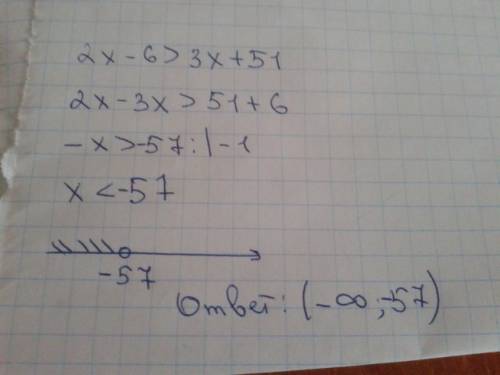 2x-6>3x+51
2x-3x>51+6
-x>-57:|-1
x<-57
-57
Ответ: (-∞;-57)